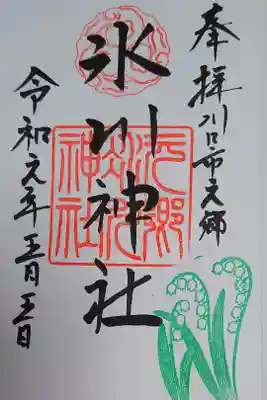 奉拝川口市元郷
氷川神社
元郷氷川神社
令和元年五月五日